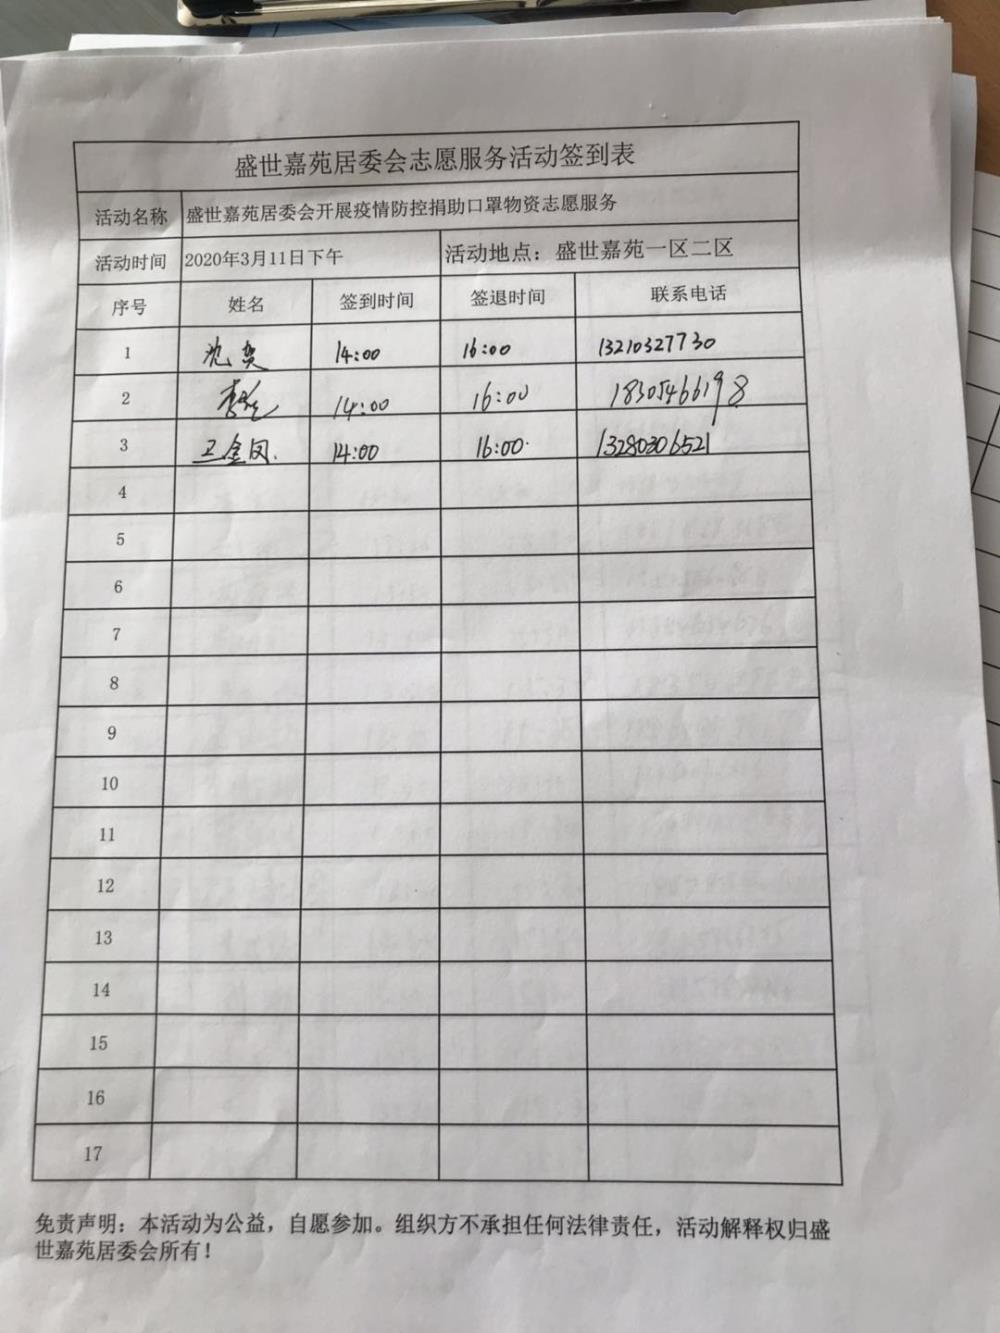 盛世嘉苑居委会志愿服务活动签到表
活动名称 盛世嘉苑居委会开展疫情防控捐助口罩物资志愿服务
活动时间 2020年3月11日下午 活动地点：盛世嘉苑一区二区
序号 姓名 签到时间 签退时间 联系电话
1 14:00 16:00 13210327730
2 14:00 16:00 18305466198
3 王金凤. 14:00 16:00 13280306521
4
5
6
7
8
9
10
11
12
13
14
15
16
17
免责声明：本活动为公益，自愿参加。组织方不承担任何法律责任，活动解释权归盛
世嘉苑居委会所有！